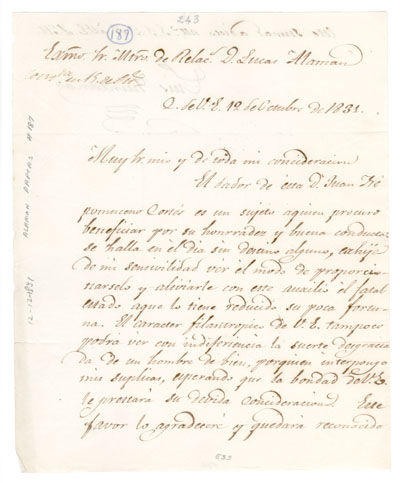 243
187
Exmo. Sr. Mtro. de Relac. D. Lucas Alaman
S. de V. E. 12 de Octubre de 1831.
Muy Sr. mio y de toda mi concideracion
El dador de esta D. Juan Ne
pomuceno Cortés es un sujeto aquien procuro
beneficiar por su honrrades y buena conducta
se halla en el dia sin destino alguno, exhije
de mi sensivilidad ver el modo de proporcio-
narselo y aliviarle con este auxilio el fatal
estado aque lo tiene reducido su poca fortu-
na. El caracter filantropico de V. E. tampoco
podrá ver con indiferencia la suerte desgracia
da de un hombre de bien, porquien interpongo
mis suplicas, esperando que la bondad de V. E.
le prestara su devida concideracion. Este
favor lo agradeceré y quedará reconocido
ALAMAN PAPERS # 187
12-12-1831
533